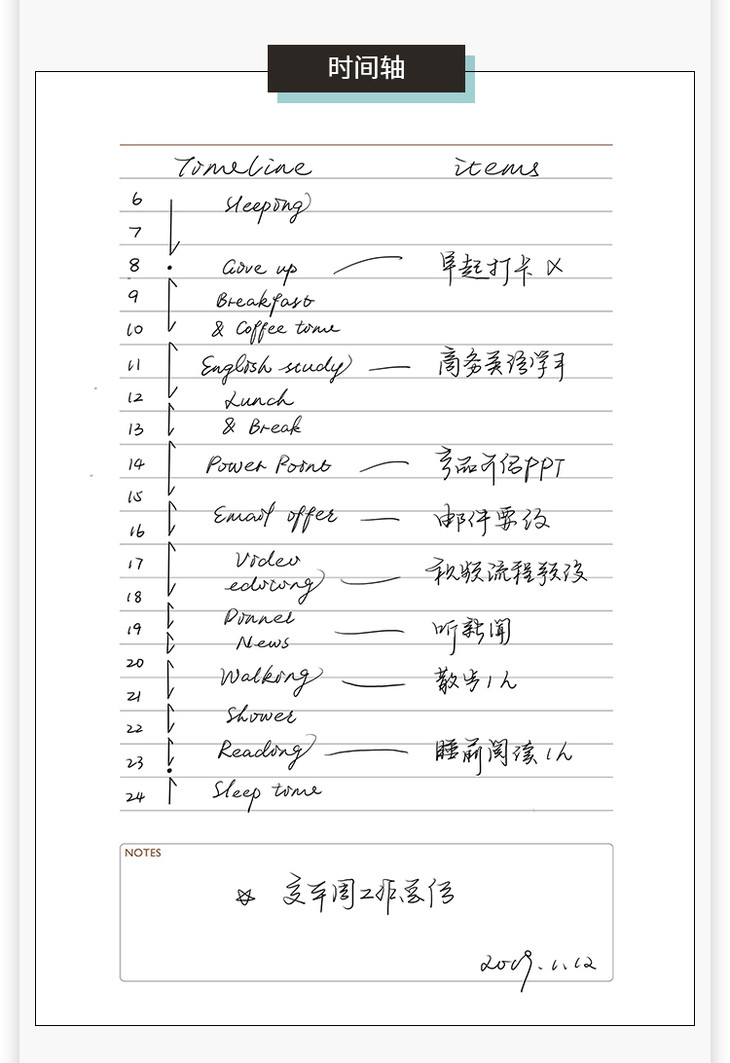 时间轴
Timeline items
6 Sleeping
7
8 Give up 早起打卡 ×
9 Breakfast
10 & Coffee time
11 English study 商务英语学习
12 Lunch
13 & Break
14 Power Point 产品介绍PPT
15
16 Email offer 邮件要约
17 Video
18 editing 视频流程预设
19 Dinner
News 听新闻
20
21 Walking 散步1h
22 Shower
23 Reading 睡前阅读1h
24 Sleep time
NOTES
☆ 交本周工作总结
2019.1.12